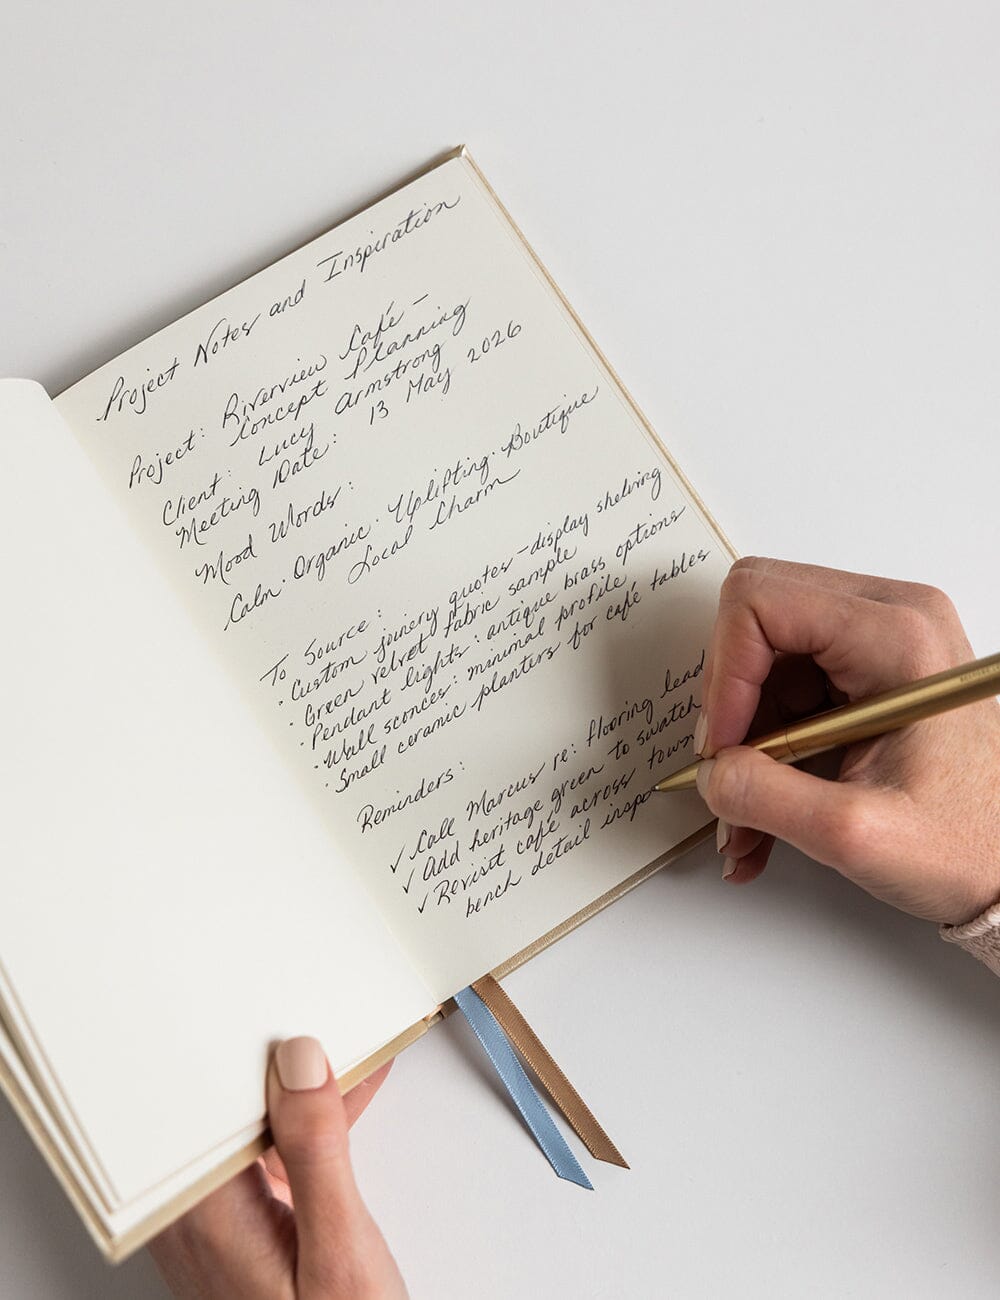 Project Notes and Inspiration
Project: Riverview Café –
Concept Planning
Client: Lucy Armstrong
Meeting Date: 13 May 2026
Mood Words:
Calm · Organic · Uplifting · Boutique
Local Charm
To Source:
· Custom joinery quotes – display shelving
· Green velvet fabric sample
· Pendant lights: antique brass options
· Wall sconces: minimal profile
· Small ceramic planters for café tables
Reminders:
✓ Call Marcus re: flooring lead
✓ Add heritage green to swatch
✓ Revisit café across town
bench detail inspo